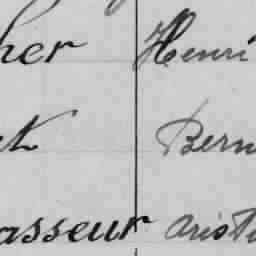 her Henri
et Bern
asseur Arist